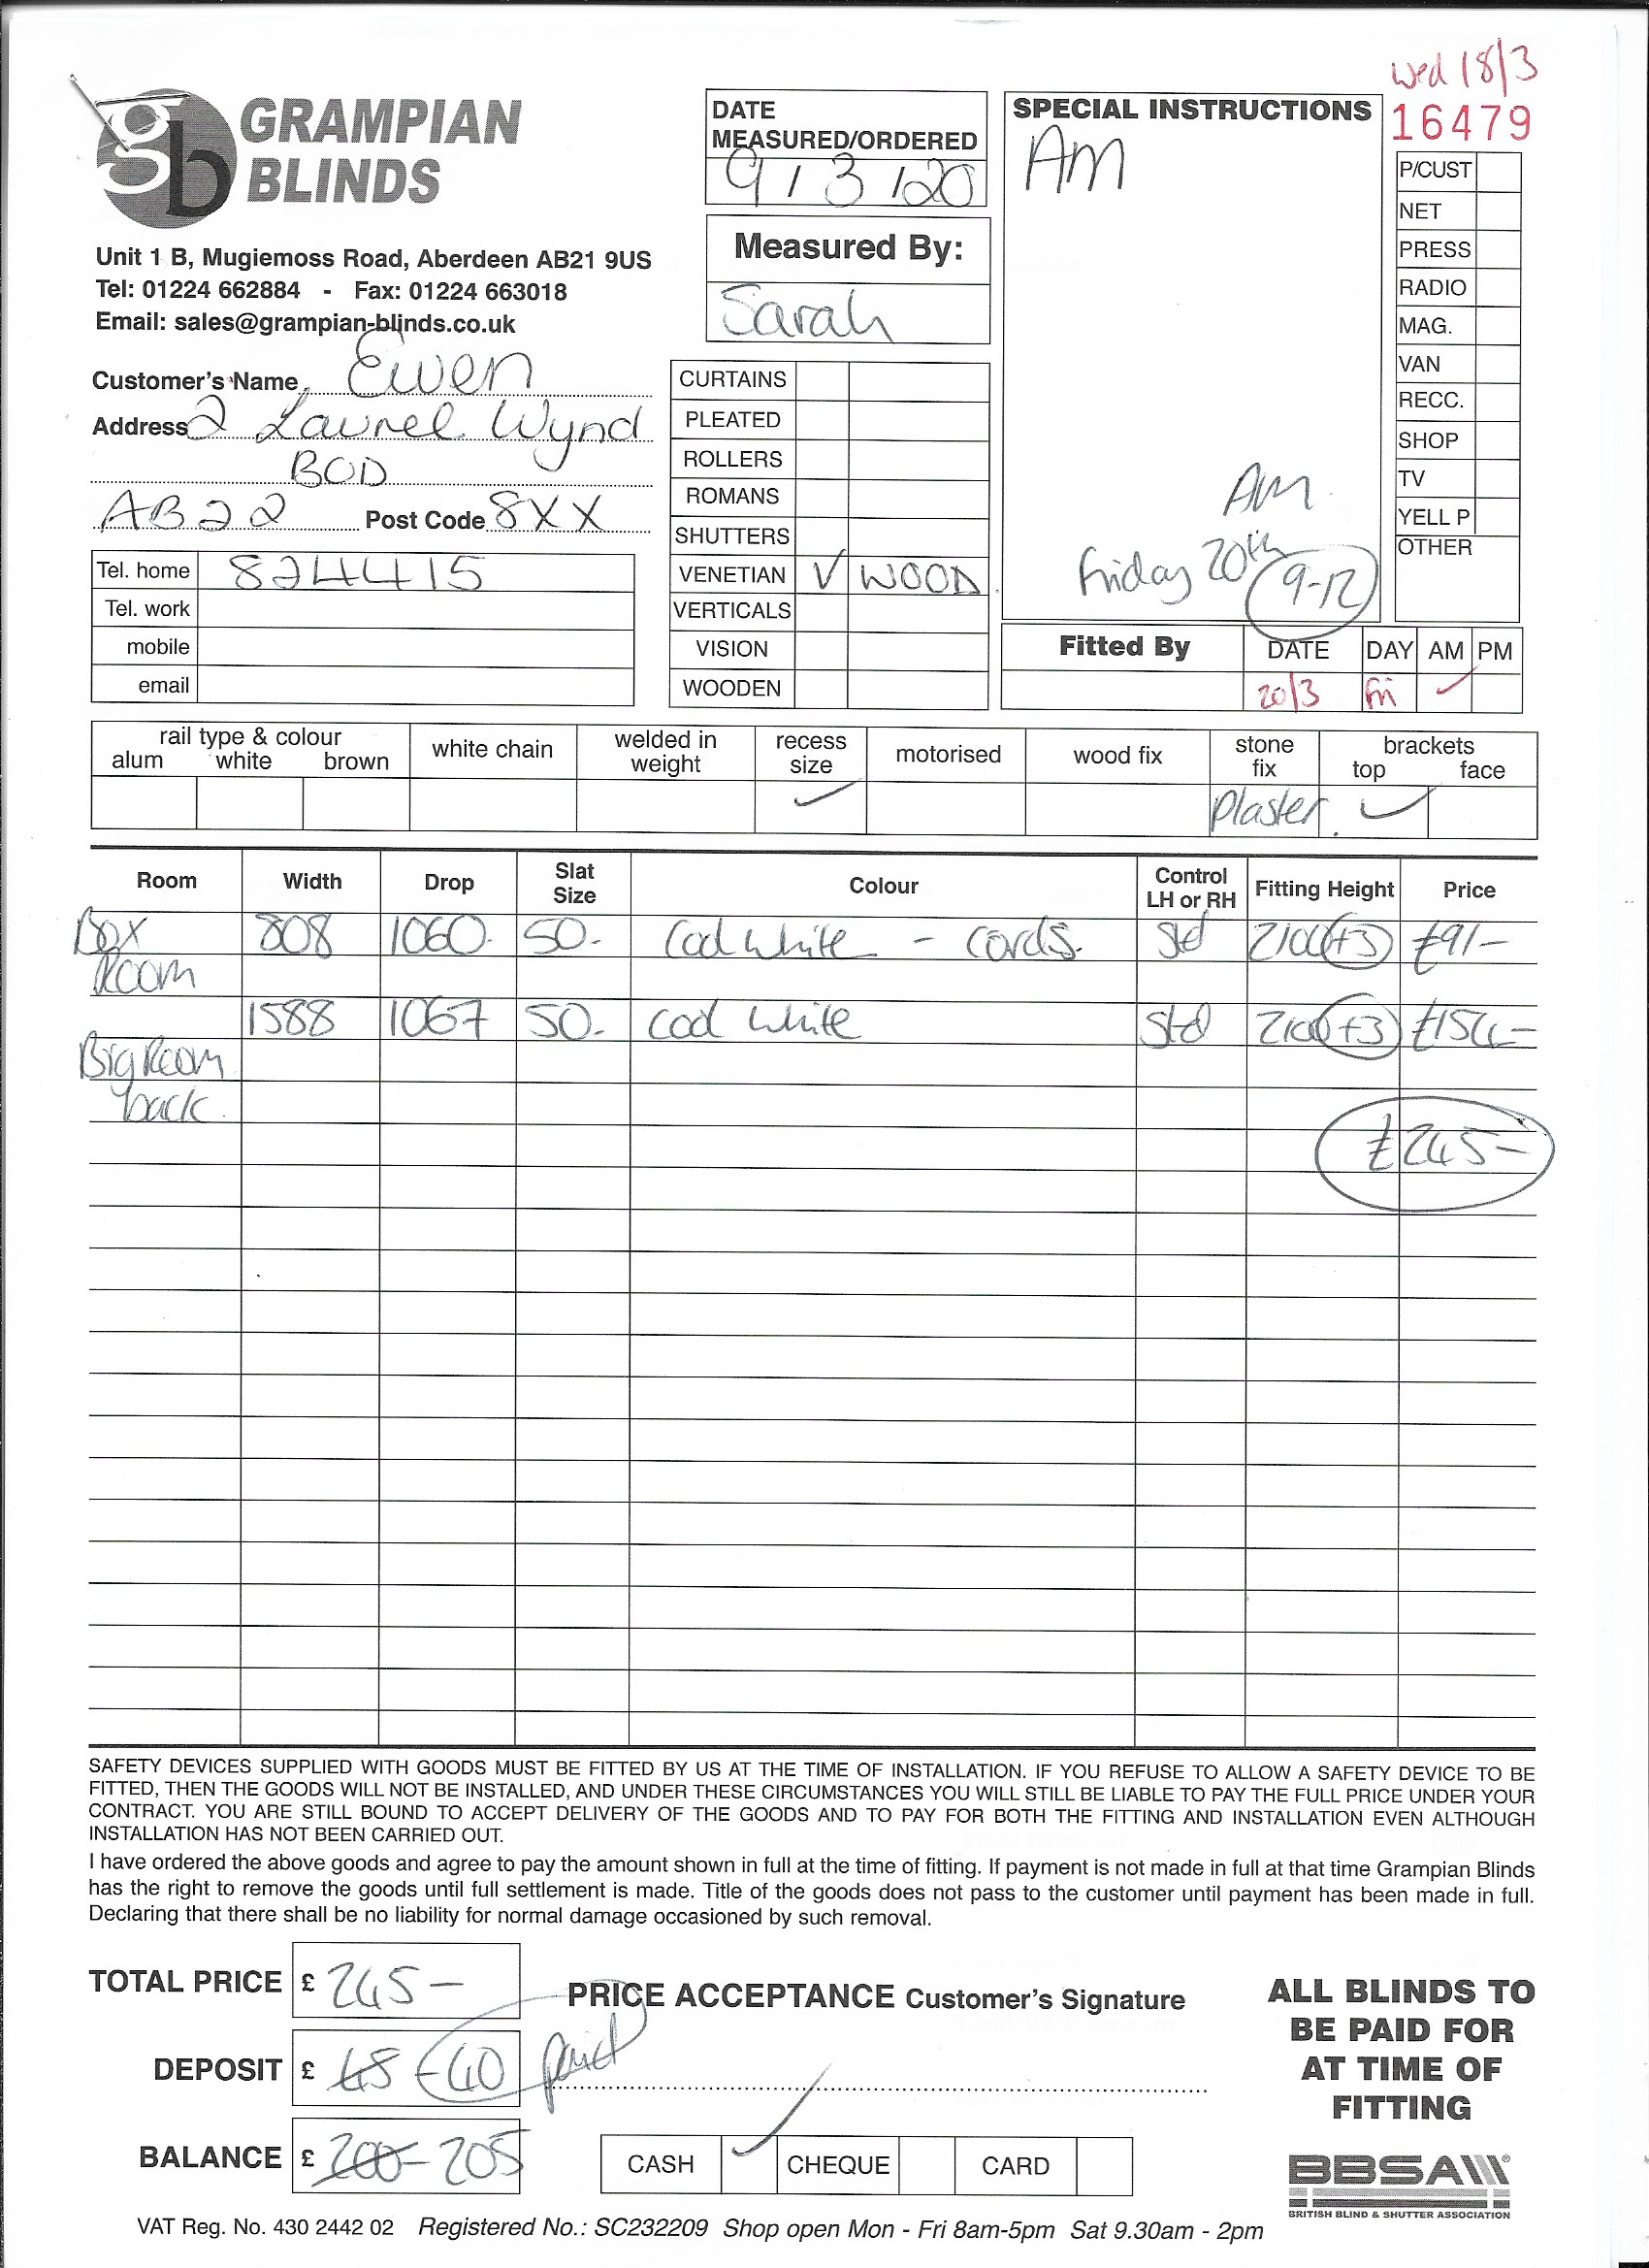 wed 18/3
16479
gb GRAMPIAN BLINDS
Unit 1 B, Mugiemoss Road, Aberdeen AB21 9US
Tel: 01224 662884 - Fax: 01224 663018
Email: sales@grampian-blinds.co.uk
Customer's Name Ewen
Address 2 Laurel Wynd
BOD
AB22 Post Code 8XX
Tel. home 824415
Tel. work
mobile
email
DATE MEASURED/ORDERED
9 / 3 / 20
Measured By:
Sarah
CURTAINS
PLEATED
ROLLERS
ROMANS
SHUTTERS
VENETIAN ✓ WOOD
VERTICALS
VISION
WOODEN
SPECIAL INSTRUCTIONS
AM
AM
Friday 20th 9-12
P/CUST
NET
PRESS
RADIO
MAG.
VAN
RECC.
SHOP
TV
YELL P
OTHER
Fitted By DATE DAY AM PM
20/3 Fri ✓
rail type & colour
alum white brown
white chain
welded in weight
recess size ✓
motorised
wood fix
stone fix Plaster
brackets
top face
✓
Room Width Drop Slat Size Colour Control LH or RH Fitting Height Price
Box 808 1060 50 Cod white - cords. Std 2100 +3 £91-
Room
1588 1067 50 cod white Std 2100 +3 £154-
Big Room
back
£245-
SAFETY DEVICES SUPPLIED WITH GOODS MUST BE FITTED BY US AT THE TIME OF INSTALLATION. IF YOU REFUSE TO ALLOW A SAFETY DEVICE TO BE
FITTED, THEN THE GOODS WILL NOT BE INSTALLED, AND UNDER THESE CIRCUMSTANCES YOU WILL STILL BE LIABLE TO PAY THE FULL PRICE UNDER YOUR
CONTRACT. YOU ARE STILL BOUND TO ACCEPT DELIVERY OF THE GOODS AND TO PAY FOR BOTH THE FITTING AND INSTALLATION EVEN ALTHOUGH
INSTALLATION HAS NOT BEEN CARRIED OUT.
I have ordered the above goods and agree to pay the amount shown in full at the time of fitting. If payment is not made in full at that time Grampian Blinds
has the right to remove the goods until full settlement is made. Title of the goods does not pass to the customer until payment has been made in full.
Declaring that there shall be no liability for normal damage occasioned by such removal.
TOTAL PRICE £ 245-
DEPOSIT £ 45 £40 paid
BALANCE £ 200- 205
PRICE ACCEPTANCE Customer's Signature
CASH ✓ CHEQUE CARD
ALL BLINDS TO
BE PAID FOR
AT TIME OF
FITTING
BBSA
BRITISH BLIND & SHUTTER ASSOCIATION
VAT Reg. No. 430 2442 02 Registered No.: SC232209 Shop open Mon - Fri 8am-5pm Sat 9.30am - 2pm